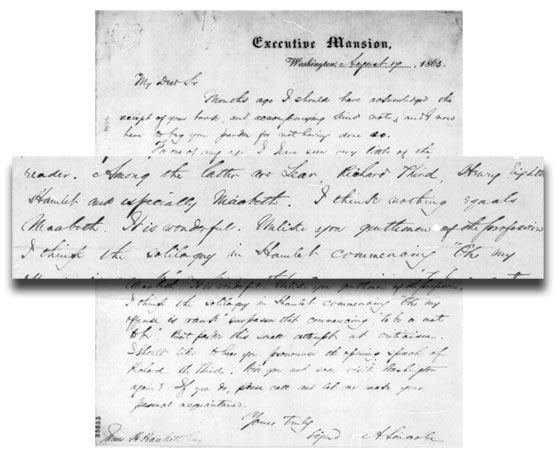 Executive Mansion,
Washington, August 17, 1863.
My Dear Sir
Months ago I should have acknowledged the
receipt of your book, and accompanying kind note, and I now
have to beg your pardon for not having done so.
For one of my age, I have seen very little of the
reader. Among the latter are Lear, Richard Third, Henry Eighth
Hamlet and especially Macbeth. I think nothing equals
Macbeth. It is wonderful. Unlike you gentlemen of the profession
I think the soliloquy in Hamlet commencing "Oh my
Macbeth. It is wonderful. Unlike you gentlemen of the profession,
I think the soliloquy in Hamlet commencing "Oh my
offense is rank" surpasses that commencing "To be or not
to be." But pardon this small attempt at criticism.
I should like to hear you pronounce the opening speech of
Richard the Third. Will you not soon visit Washington
again? If you do, please call and let me make your
personal acquaintance.
Yours truly
signed A. Lincoln
James H. Hackett, Esq